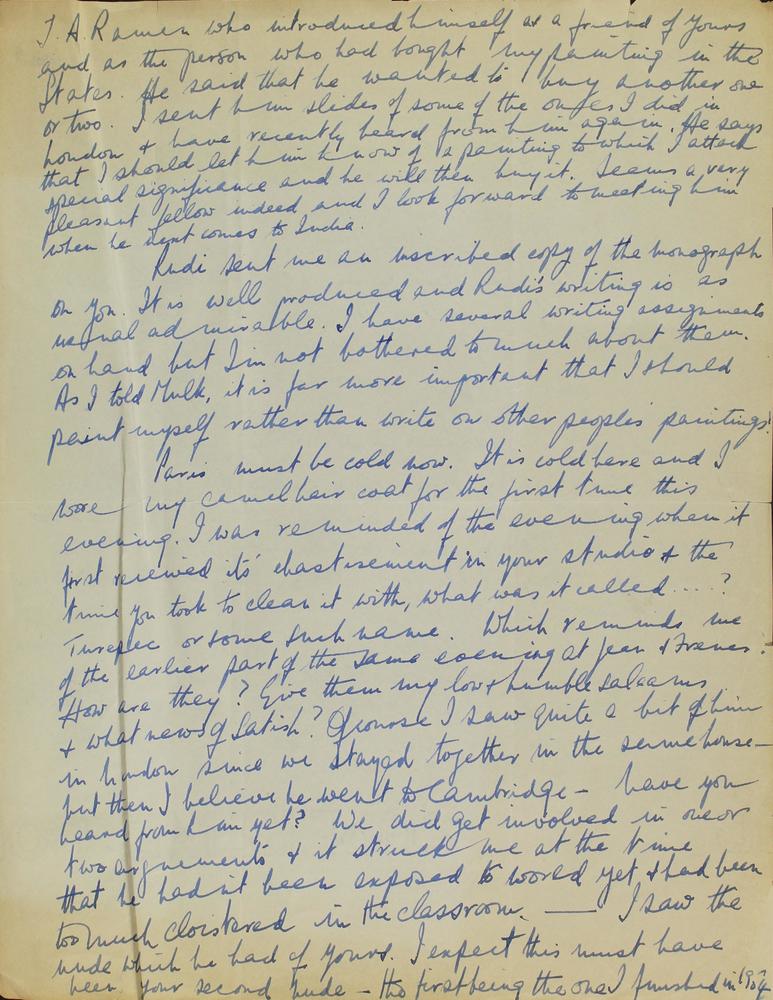 T. A. Raman who introduced himself as a friend of yours
and as the person who had bought my painting in the
States. He said that he wanted to buy another one
or two. I sent him slides of some of the ones I did in
London & have recently heard from him again. He says
that I should let him know of a painting to which I attach
special significance and he will then buy it. Seems a very
pleasant fellow indeed and I look forward to meeting him
when he next comes to India.
Rudi sent me an inscribed copy of the monograph
on you. It is well produced and Rudi's writing is as
usual admirable. I have several writing assignments
on hand but I'm not bothered to much about them.
As I told Mulk, it is far more important that I should
paint myself rather than write on other peoples paintings!
Paris must be cold now. It is cold here and I
wore my camelhair coat for the first time this
evening. I was reminded of the evening when it
first received its' chastisement in your studio & the
time you took to clean it with, what was it called....?
or some such name. Which reminds me
of the earlier part of the same evening at Jean &
How are they? Give them my love & humble salaams
& what news of Satish? Ofcourse I saw quite a bit of him
in London since we stayed together in the same house—
but then I believe he went to Cambridge – have you
heard from him yet? We did get involved in one or
two arguements & it struck me at the time
that he hadn't been exposed to world yet & had been
too much cloistered in the classroom. —— I saw the
nude which he had of yours. I expect this must have
been your second nude – the first being the one I finished in